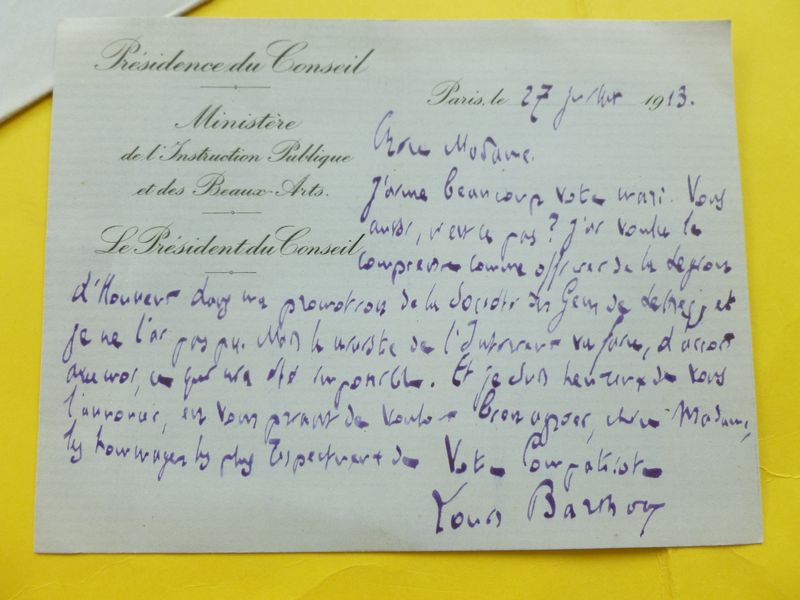 Présidence du Conseil
Ministère
de l'Instruction Publique
et des Beaux-Arts.
Le Président du Conseil
Paris, le 27 juillet 1913.
Chère Madame,
J'aime beaucoup votre mari. Vous
aussi, n'est ce pas ? J'ai voulu le
comprendre comme officier de la Légion
d'Honneur dans ma promotion de la Société des Gens de Lettres, et
je ne l'ai pas pu. Mais le ministre de l'Intérieur va faire, d'accord
avec moi, ce qui m'a été impossible. Et je suis heureux de vous
l'annoncer, en vous priant de vouloir bien agréer, chère Madame,
les hommages les plus respectueux de Votre Compatriote
Louis Barthou